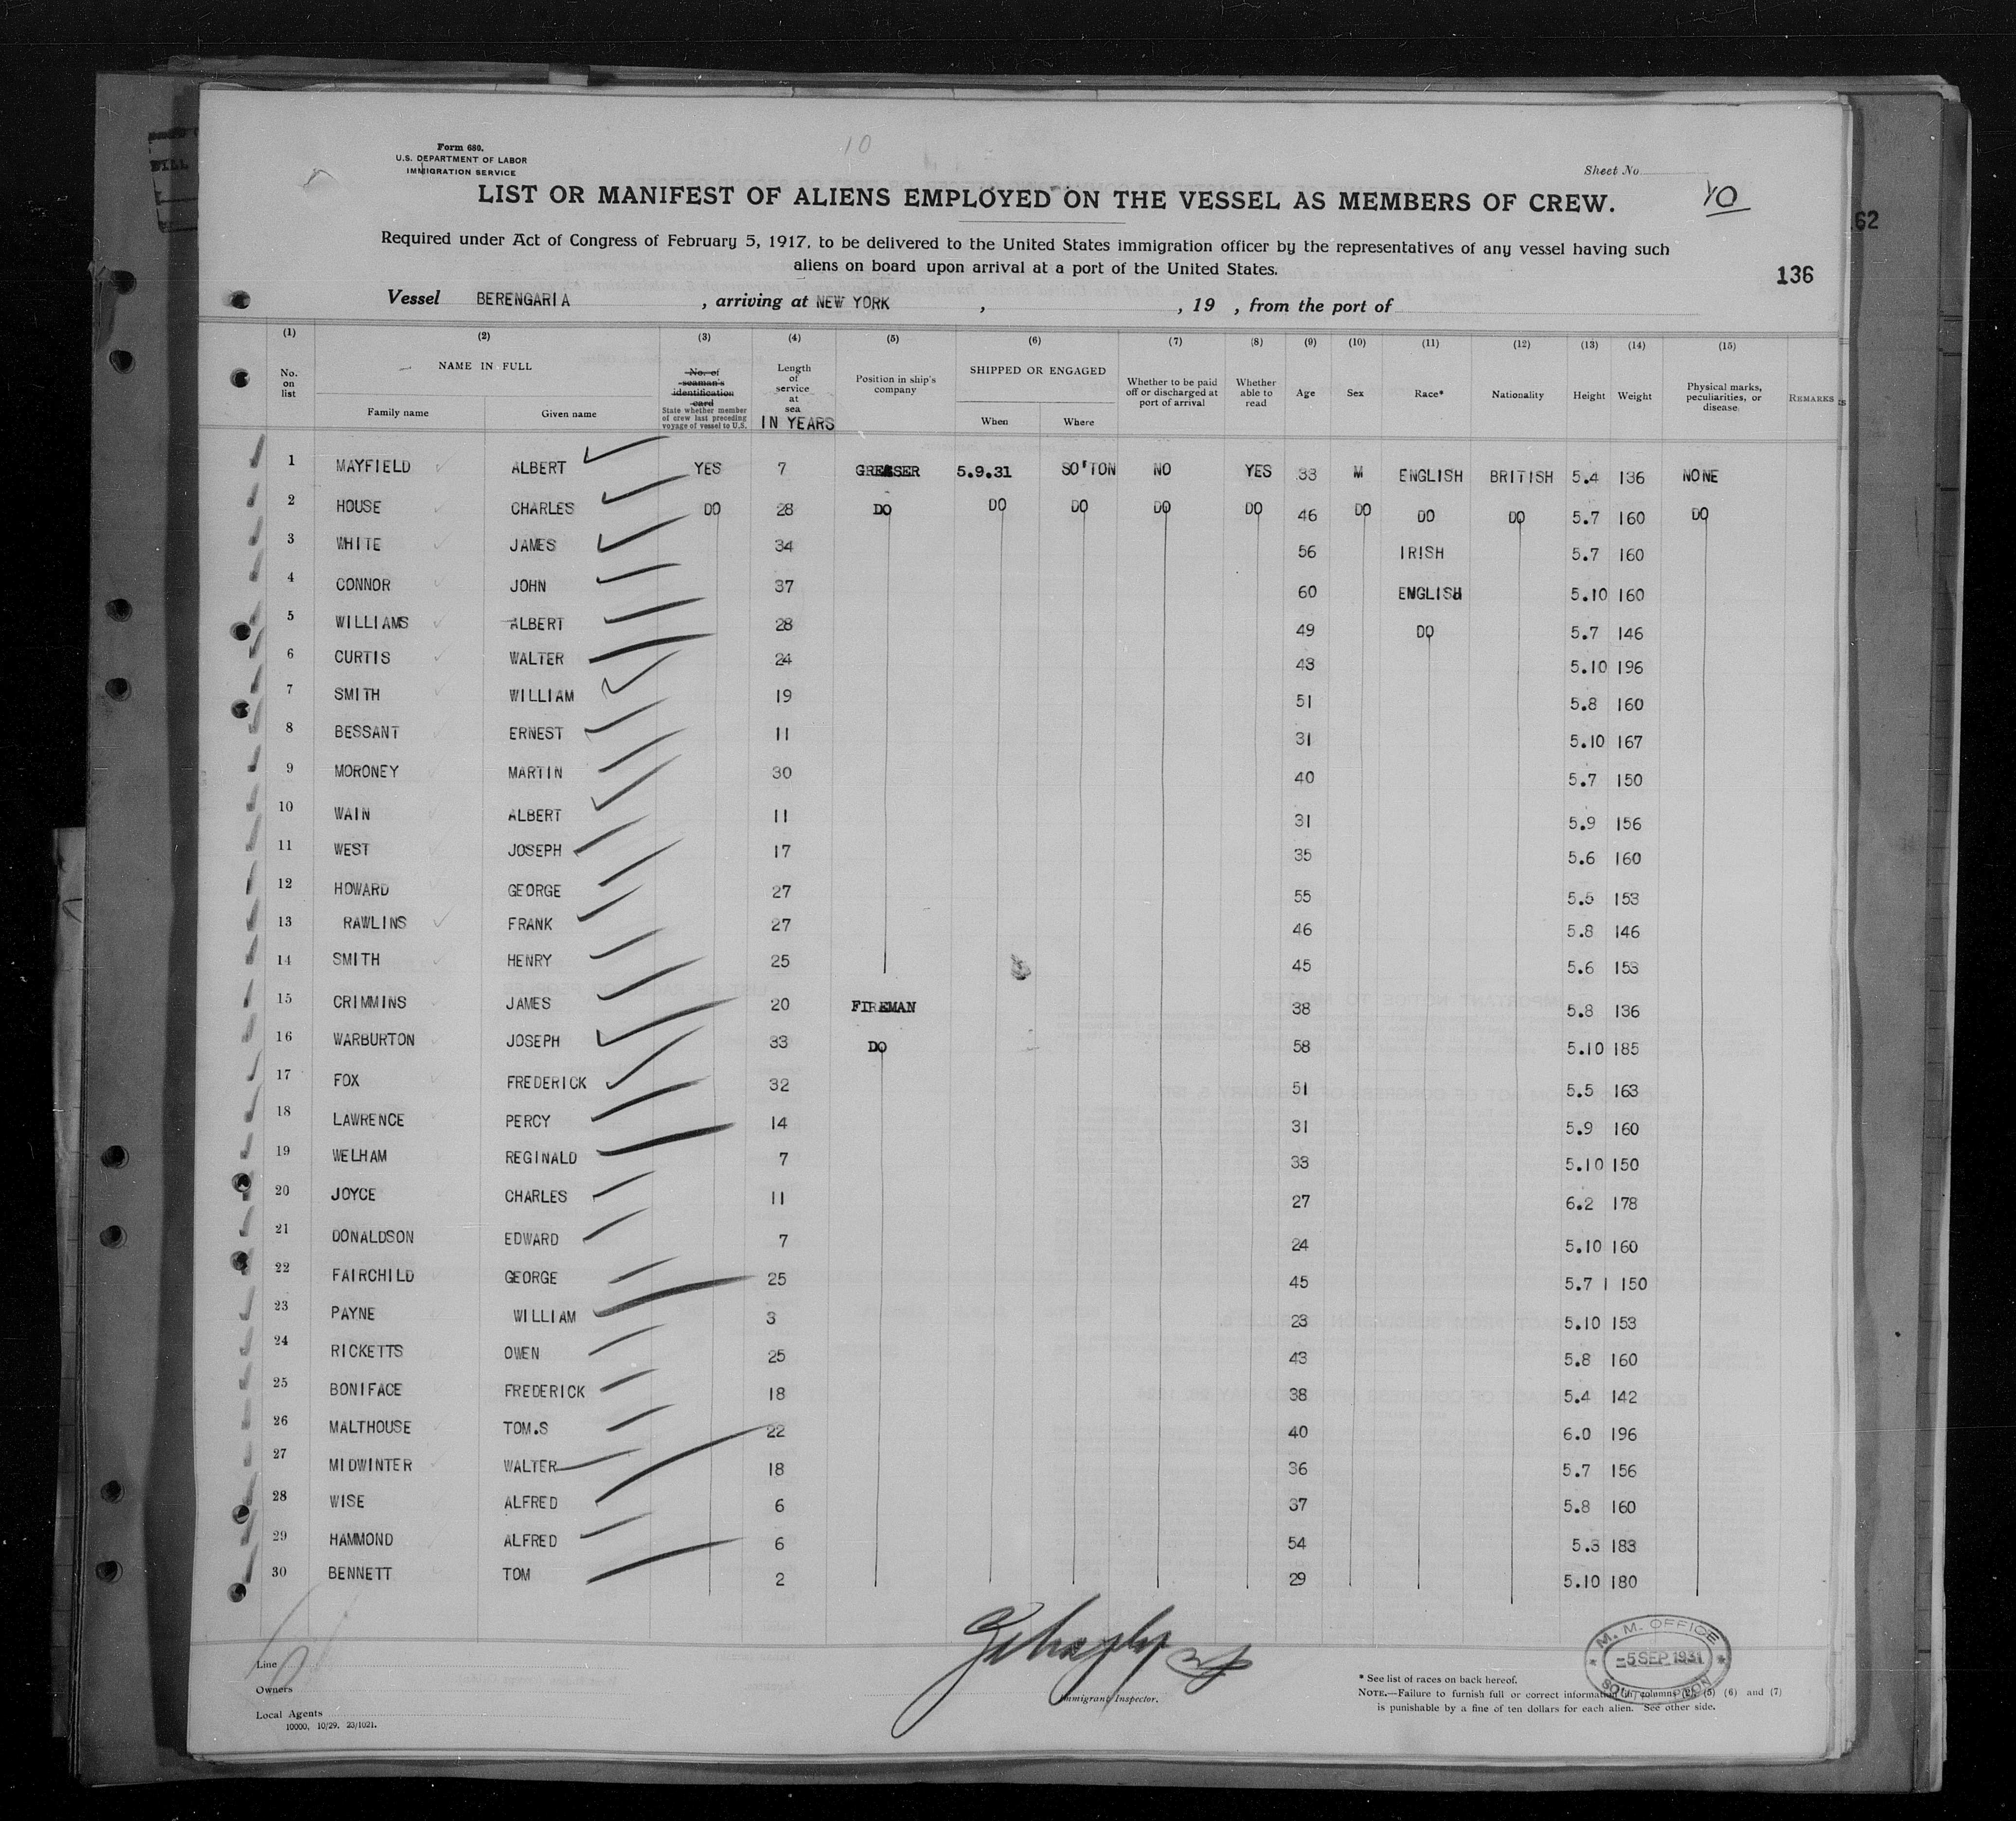 10
Form 680.
U.S. DEPARTMENT OF LABOR
IMMIGRATION SERVICE
Sheet No.
10
LIST OR MANIFEST OF ALIENS EMPLOYED ON THE VESSEL AS MEMBERS OF CREW.
Required under Act of Congress of February 5, 1917, to be delivered to the United States immigration officer by the representatives of any vessel having such
aliens on board upon arrival at a port of the United States.
62
136
Vessel BERENGARIA , arriving at NEW YORK , , 19 , from the port of
(1) (2) (3) (4) (5) (6) (7) (8) (9) (10) (11) (12) (13) (14) (15)
No. on list
NAME IN FULL
Family name Given name
No. of seaman's identification card
State whether member of crew last preceding voyage of vessel to U.S.
Length of service at sea
IN YEARS
Position in ship's company
SHIPPED OR ENGAGED
When Where
Whether to be paid off or discharged at port of arrival
Whether able to read
Age Sex Race* Nationality Height Weight
Physical marks, peculiarities, or disease
REMARKS
1 MAYFIELD ALBERT YES 7 GREASER 5.9.31 SO'TON NO YES 33 M ENGLISH BRITISH 5.4 136 NONE
2 HOUSE CHARLES DO 28 DO DO DO DO DO 46 DO DO DO 5.7 160 DO
3 WHITE JAMES 34 56 IRISH 5.7 160
4 CONNOR JOHN 37 60 ENGLISH 5.10 160
5 WILLIAMS ALBERT 28 49 DO 5.7 146
6 CURTIS WALTER 24 43 5.10 196
7 SMITH WILLIAM 19 51 5.8 160
8 BESSANT ERNEST 11 31 5.10 167
9 MORONEY MARTIN 30 40 5.7 150
10 WAIN ALBERT 11 31 5.9 156
11 WEST JOSEPH 17 35 5.6 160
12 HOWARD GEORGE 27 55 5.5 153
13 RAWLINS FRANK 27 46 5.8 146
14 SMITH HENRY 25 45 5.6 153
15 CRIMMINS JAMES 20 FIREMAN 38 5.8 136
16 WARBURTON JOSEPH 33 DO 58 5.10 185
17 FOX FREDERICK 32 51 5.5 163
18 LAWRENCE PERCY 14 31 5.9 160
19 WELHAM REGINALD 7 33 5.10 150
20 JOYCE CHARLES 11 27 6.2 178
21 DONALDSON EDWARD 7 24 5.10 160
22 FAIRCHILD GEORGE 25 45 5.7 1 150
23 PAYNE WILLIAM 3 23 5.10 153
24 RICKETTS OWEN 25 43 5.8 160
25 BONIFACE FREDERICK 18 38 5.4 142
26 MALTHOUSE TOM.S 22 40 6.0 196
27 MIDWINTER WALTER 18 36 5.7 156
28 WISE ALFRED 6 37 5.8 160
29 HAMMOND ALFRED 6 54 5.3 183
30 BENNETT TOM 2 29 5.10 180
Line
Owners
Local Agents
10000, 10/29. 23/1021.
Immigrant Inspector.
* See list of races on back hereof.
NOTE.—Failure to furnish full or correct information in columns (2), (5) (6) and (7)
is punishable by a fine of ten dollars for each alien. See other side.
M. M. OFFICE
-5 SEP 1931